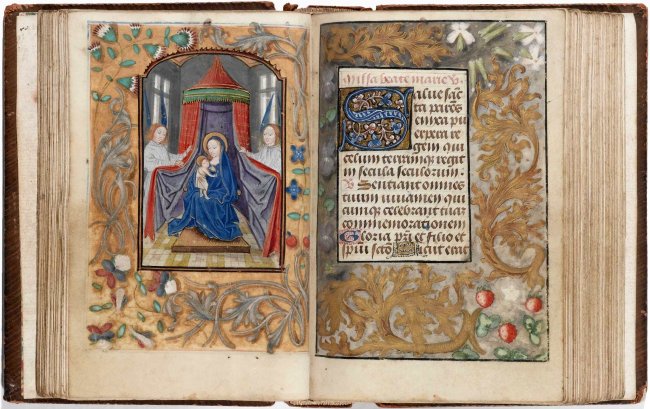 Missa beate marie v
Salue sac
ta parens
enixa pu
erpera re
gem qui
celum terramque regit
in secula seculorum.
V Sentiant omnes
tuum iuuamen qui
cumque celebrant tuam
commemorationem
Gloria pri et filio et
spiu scto sicut erat